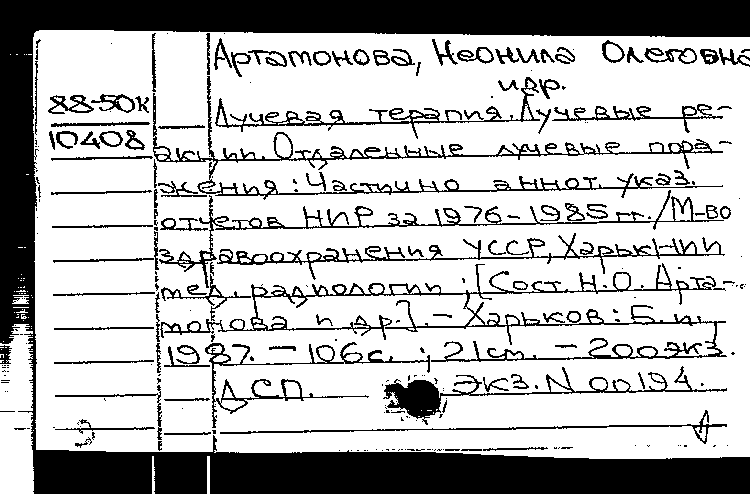 Артамонова, Неонила Олеговна
и др.
88-50к
10408
Лучевая терапия. Лучевые ре-
акции. Отдаленные лучевые пора-
жения: Частично аннот. указ.
отчетов НИР за 1976-1985 гг. / М-во
здравоохранения УССР, Харьк НИИ
мед. радиологии; [Сост. Н.О. Арта-
монова и др.]. - Харьков: Б. и.,
1987. - 106 с.; 21 см. - 200 экз.
ДСП. Экз. N 00194.